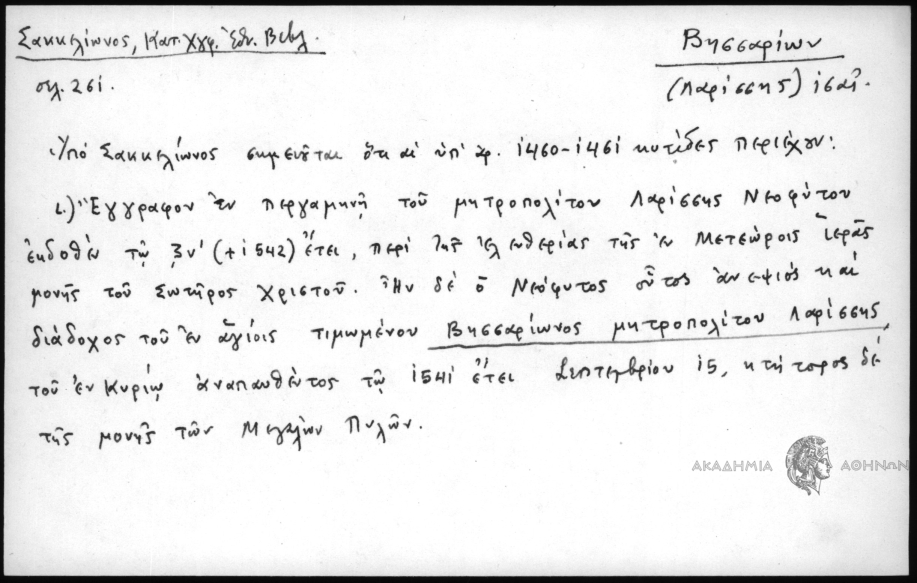 Σακκελίωνος, Κατ. Χγφ. Ἐθν. Βιβλ.
σελ. 261.
Βησσαρίων
(Λαρίσσης) 15αἰ.
Ὑπό Σακκελίωνος σημειοῦται ὅτι αἱ ὑπ' ἀρ. 1460-1461 κυτίδες περιέχουν:
1.) Ἔγγραφον ἐν περγαμηνῇ τοῦ μητροπολίτου Λαρίσσης Νεοφύτου
ἐκδοθέν τῷ ζν' (+1542) ἔτει, περί τῆς ἐλευθερίας τῆς ἐν Μετεώροις ἱερᾶς
μονῆς τοῦ Σωτῆρος Χριστοῦ. Ἦν δέ ὁ Νεόφυτος οὗτος ἀνεψιός καί
διάδοχος τοῦ ἐν ἁγίοις τιμωμένου Βησσαρίωνος μητροπολίτου Λαρίσσης,
τοῦ ἐν Κυρίῳ ἀναπαυθέντος τῷ 1541 ἔτει Σεπτεμβρίου 15, κτήτορος δέ
τῆς μονῆς τῶν Μεγάλων Πυλῶν.
ΑΚΑΔΗΜΙΑ ΑΘΗΝΩΝ